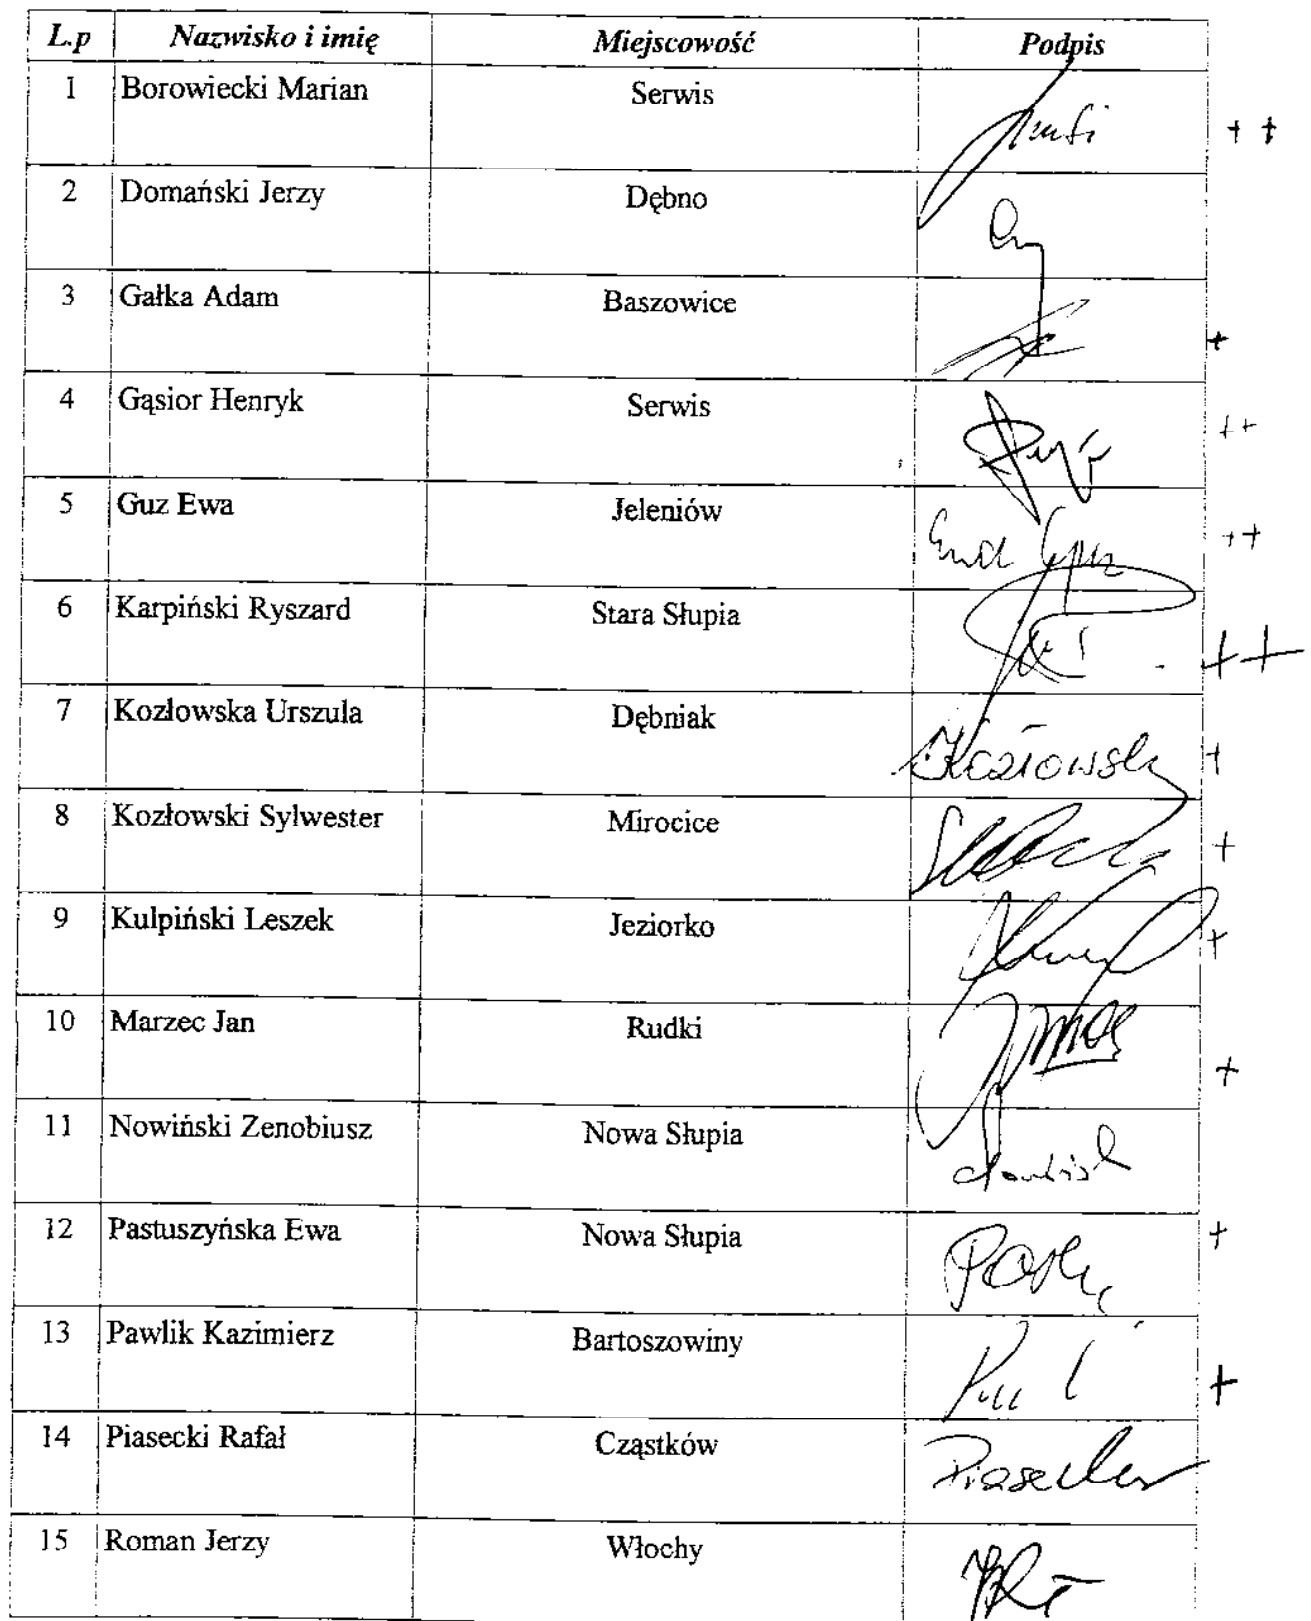 L.p Nazwisko i imię Miejscowość Podpis
1 Borowiecki Marian Serwis + +
2 Domański Jerzy Dębno
3 Gałka Adam Baszowice +
4 Gąsior Henryk Serwis ++
5 Guz Ewa Jeleniów Ewa Guz ++
6 Karpiński Ryszard Stara Słupia ++
7 Kozłowska Urszula Dębniak +
8 Kozłowski Sylwester Mirocice +
9 Kulpiński Leszek Jeziorko +
10 Marzec Jan Rudki +
11 Nowiński Zenobiusz Nowa Słupia
12 Pastuszyńska Ewa Nowa Słupia +
13 Pawlik Kazimierz Bartoszowiny +
14 Piasecki Rafał Cząstków
15 Roman Jerzy Włochy